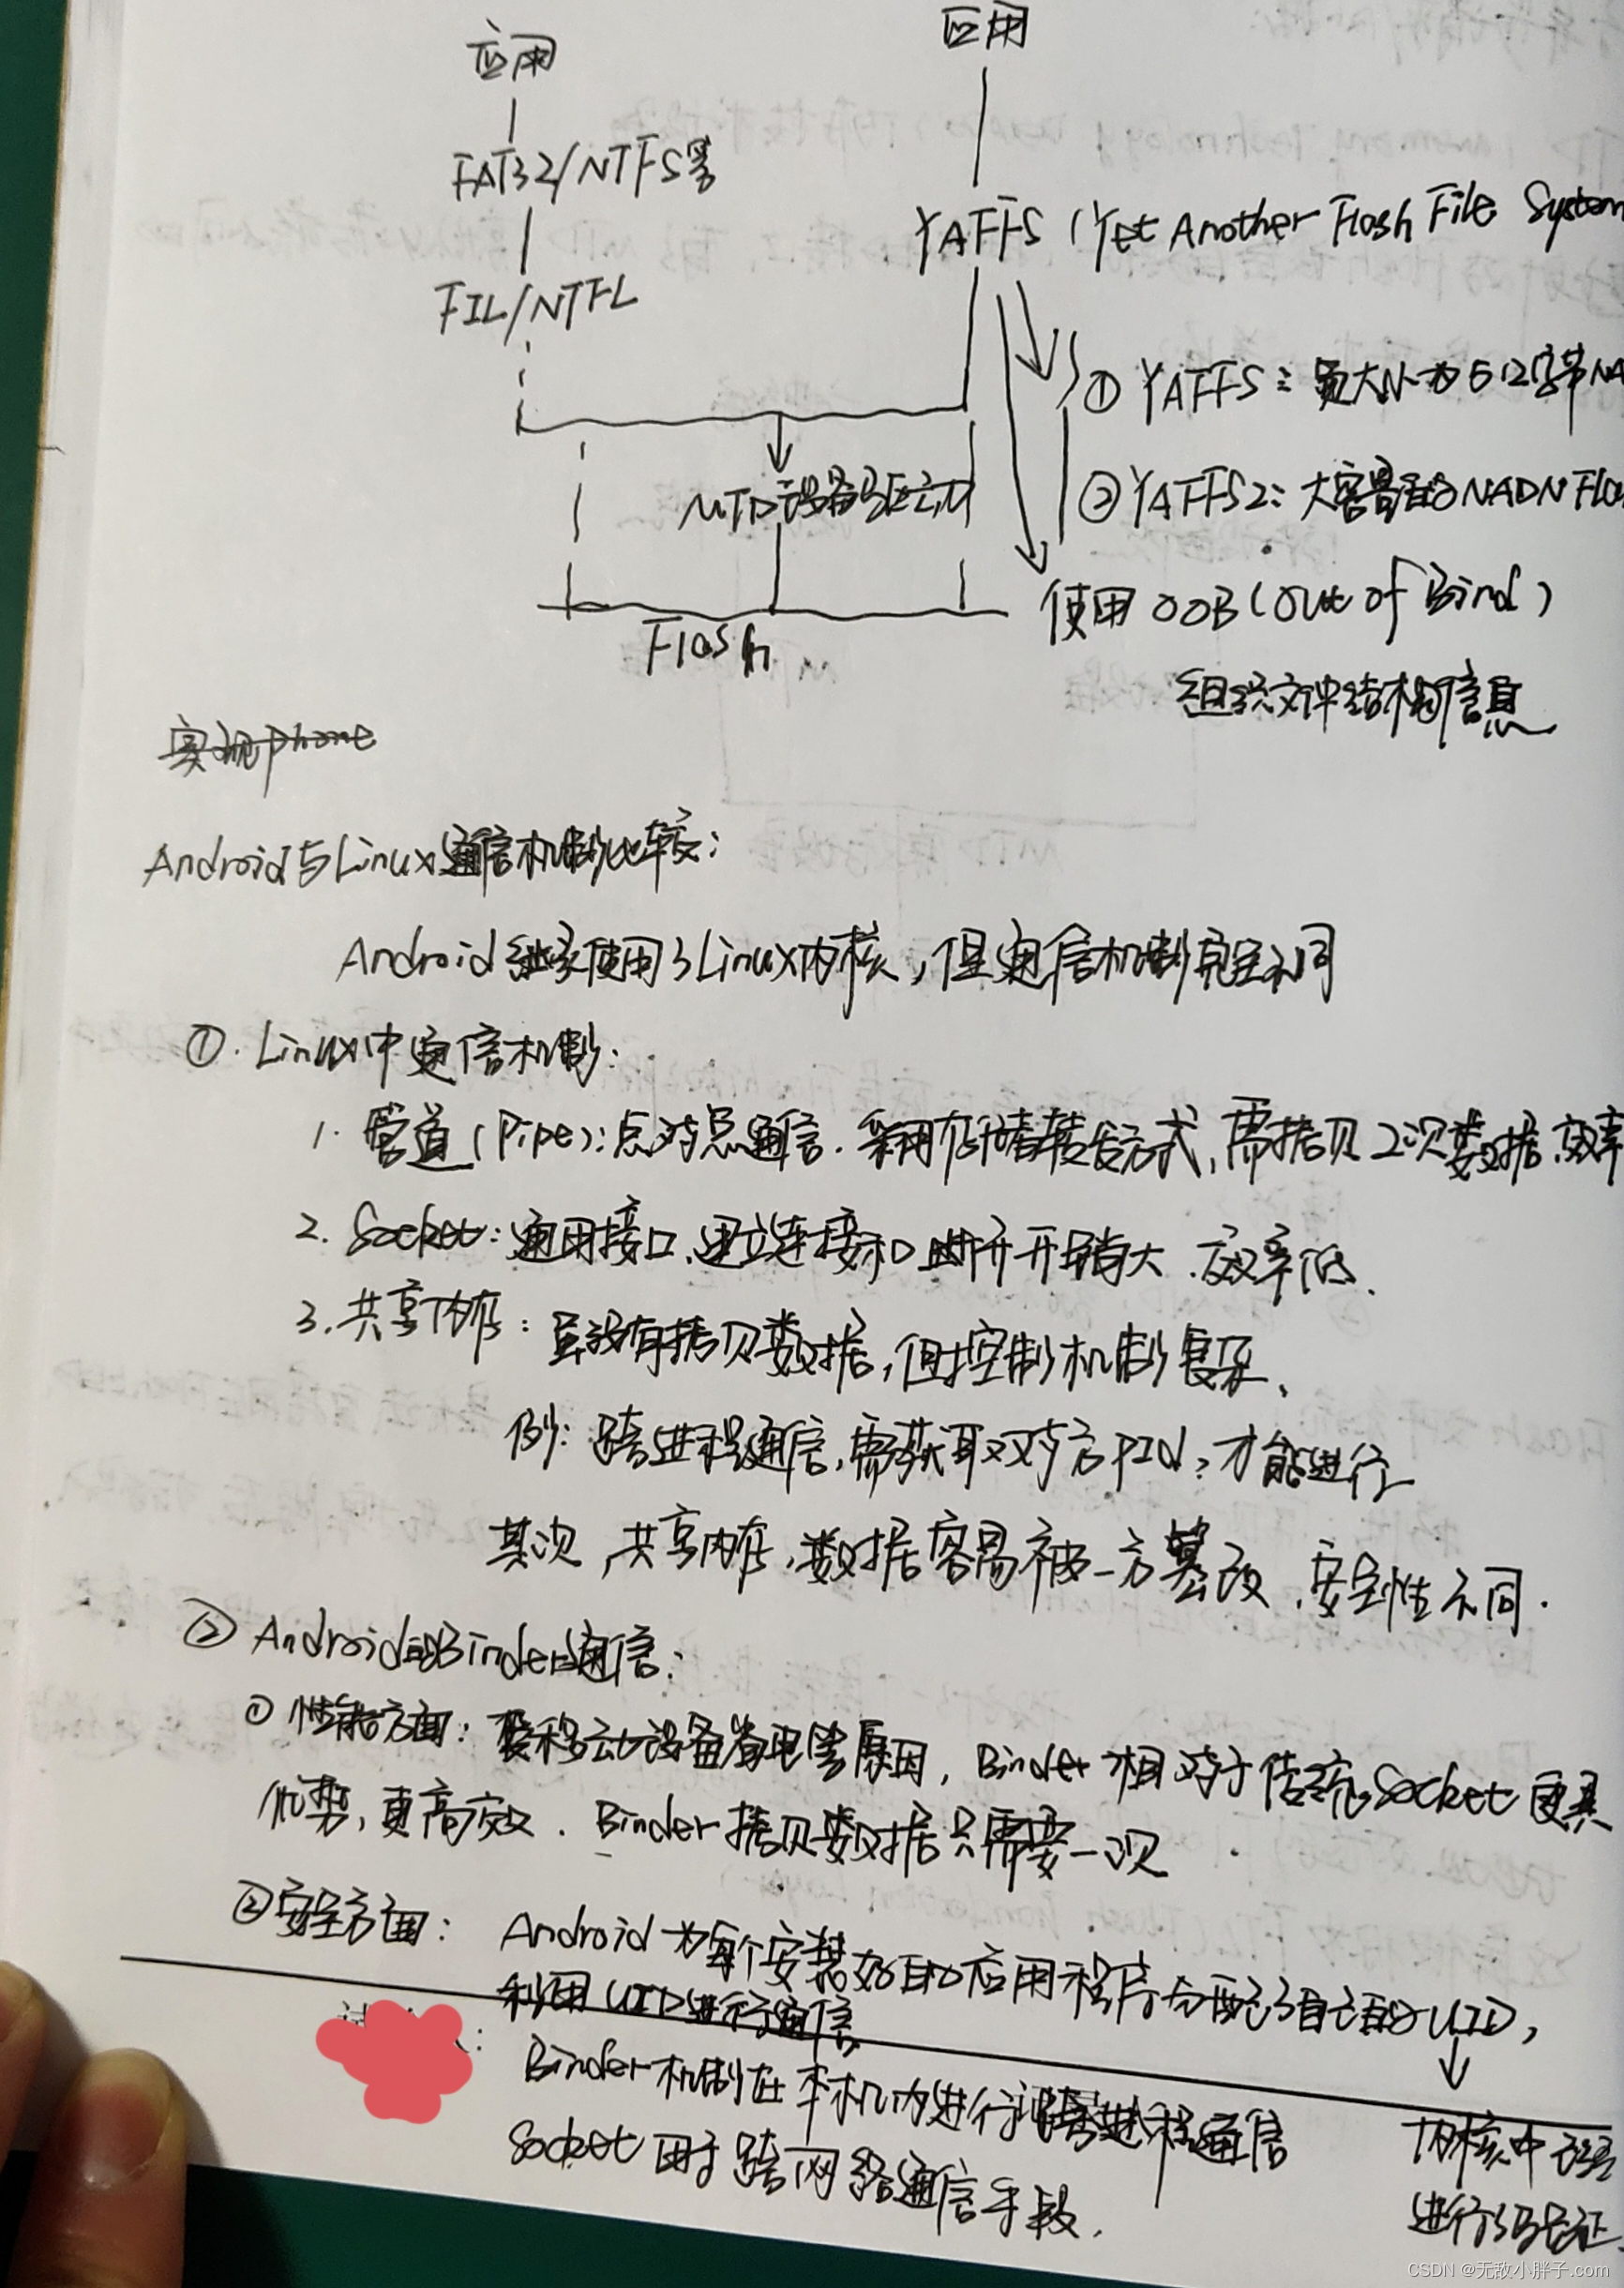 应用
应用
FAT32/NTFS等
YAFFS (Yet Another Flash File System
FIL/NTFL
① YAFFS: 页大小为512字节NA
MTD设备驱动
② YAFFS2: 大容量的NADN Fla
使用 OOB (Out of Bind)
Flash
组织文件结构信息
实现phone
Android与Linux通信机制比较:
Android继承使用了Linux内核,但通信机制完全不同
①. Linux中通信机制:
1. 管道 (Pipe): 点对点通信. 采用存储转发方式,需拷贝2次数据.效率
2. Socket: 通用接口.建立连接和断开开销大.效率低.
3. 共享内存: 虽没有拷贝数据,但控制机制复杂.
例: 跨进程通信,需获取对方PId,才能进行
其次,共享内存,数据容易被一方篡改.安全性不同.
② Android的Binder通信:
① 性能方面: 移动设备省电等原因,Binder相对于传统Socket更具
优势,更高效. Binder拷贝数据只需要一次
② 安全方面: Android为每个安装好的应用程序分配了自己的UID,
利用UID进行通信
Binder机制在本机内进行跨进程通信
内核中
Socket用于跨网络通信手段.
进行验证.
CSDN @无敌小胖子.com